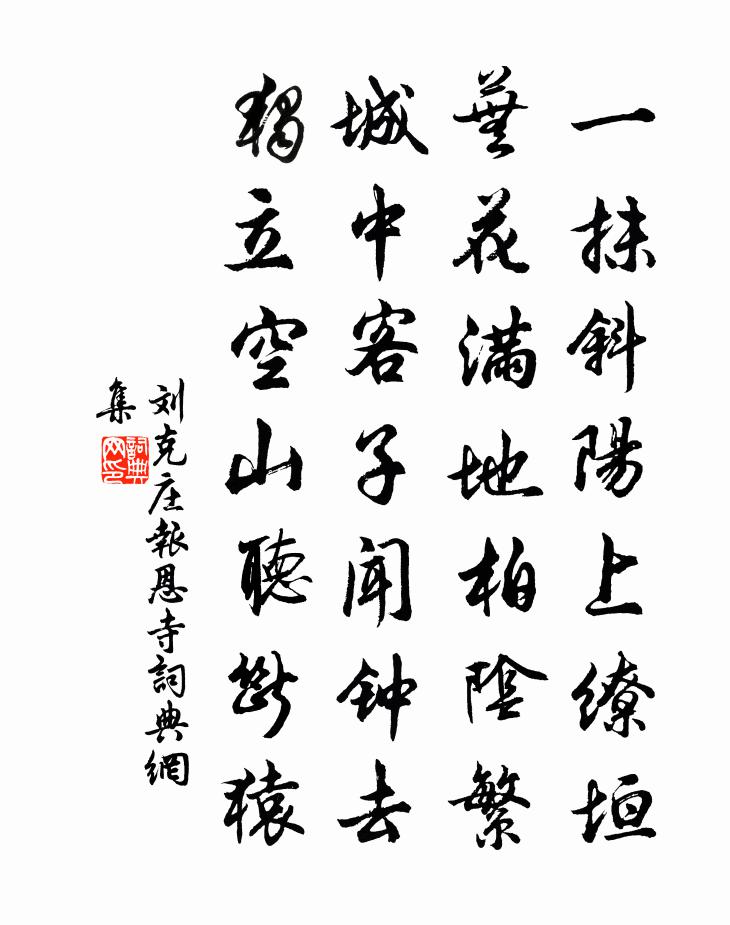 一抹斜陽上繚垣
蕪花滿地柏陰繁
城中客子聞钟去
獨立空山聽斷猿
刘克庄報恩寺詞典網
集
詞典網印